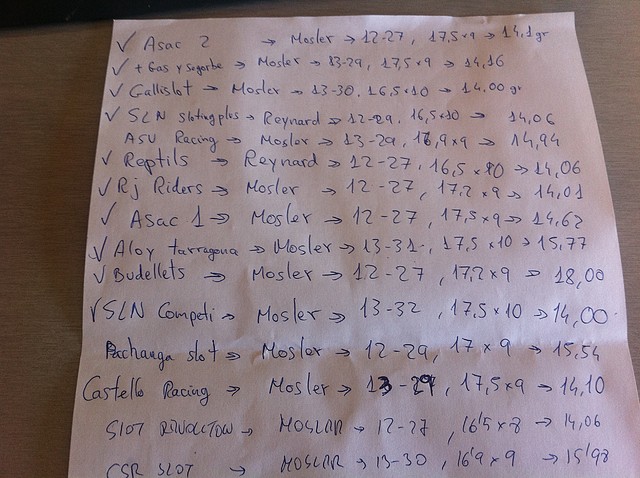 ✓ Asac 2 → Mosler → 12-27, 17,5x9 → 14,1 gr
✓ + Gas y Segorbe → Mosler → 13-29, 17,5x9 → 14,16
✓ Gallislot → Mosler → 13-30, 16,5x10 → 14,00 gr
✓ SLN Slotingplus → Reynard → 12-29, 16,5x10 → 14,06
ASU Racing → Mosler → 13-29, 16,9x9 → 14,94
✓ Reptils → Reynard → 12-27, 16,5x10 → 14,06
✓ Rj Riders → Mosler → 12-27, 17,2x9 → 14,01
✓ Asac 1 → Mosler → 12-27, 17,5x9 → 14,62
✓ Aloy tarragona → Mosler → 13-31, 17,5x10 → 15,77
✓ Budellets → Mosler → 12-27, 17,2x9 → 18,00
✓ SLN Competi → Mosler → 13-32, 17,5x10 → 14,00
Pachanga slot → Mosler → 12-29, 17x9 → 15,54
Castello Racing → Mosler → 13-29, 17,5x9 → 14,10
SLOT → MOSLER → 12-27, 16'5x8 → 14,06
CSR SLOT → MOSLER → 13-30, 16'9x9 → 15'98